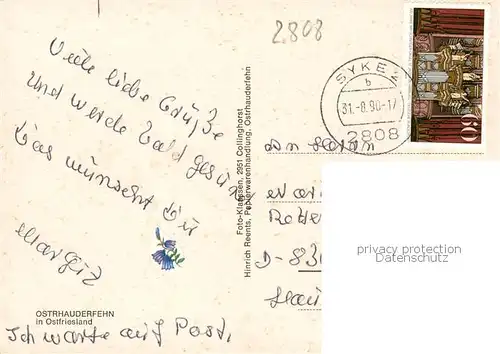 2808
Viele liebe Grüße
und werde bald gesund
Das wünscht Dir
Margit
OSTRHAUDERFEHN
in Ostfriesland
Ich warte auf Post.
Foto-Klaassen, 2951 Collinghorst
Hinrich Reents, Papierwarenhandlung, Ostrhauderfehn
SYKE
b
31.-8.90-17
2808
60
An
D-83
privacy protection
Datenschutz